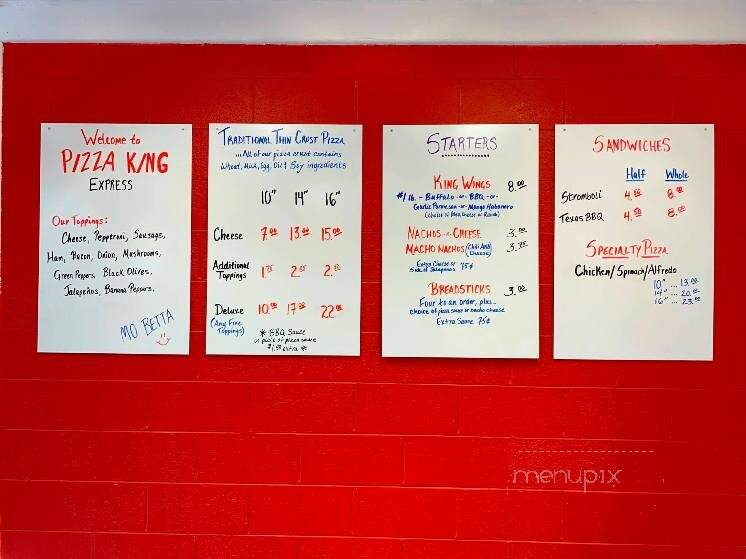 Welcome to
PIZZA KING
EXPRESS
Our Toppings:
Cheese, Pepperoni, Sausage,
Ham, Bacon, Onion, Mushrooms,
Green Peppers, Black Olives,
Jalapeños, Banana Peppers.
MO BETTA
TRADITIONAL THIN CRUST PIZZA
...All of our pizza crust contains
Wheat, Milk, Egg, Oil & Soy ingredients
10" 14" 16"
Cheese 7.00 13.00 15.00
Additional
Toppings
Deluxe 10.50 17.00 22.00
(Any Five
Toppings)
* BBQ Sauce
in place of pizza sauce
$1.50 extra *
STARTERS
KING WINGS 8.00
#1 lb. - Buffalo -or- BBQ -or-
Garlic Parmesan -or- Mango Habanero
(choice of Bleu Cheese or Ranch)
NACHOS -n- CHEESE 3.00
MACHO NACHOS (Chili And Cheese)
Extra Cheese or
Side of Jalapenos 75¢
BREADSTICKS 3.00
Four to an order, plus...
choice of pizza sauce or nacho cheese
Extra Sauce 75¢
SANDWICHES
Half Whole
Stromboli 4.50 8.00
Texas BBQ 4.50 8.00
SPECIALTY PIZZA
Chicken/Spinach/Alfredo
10" ... 13.00
14" ... 20.00
16" ... 23.00
menupix